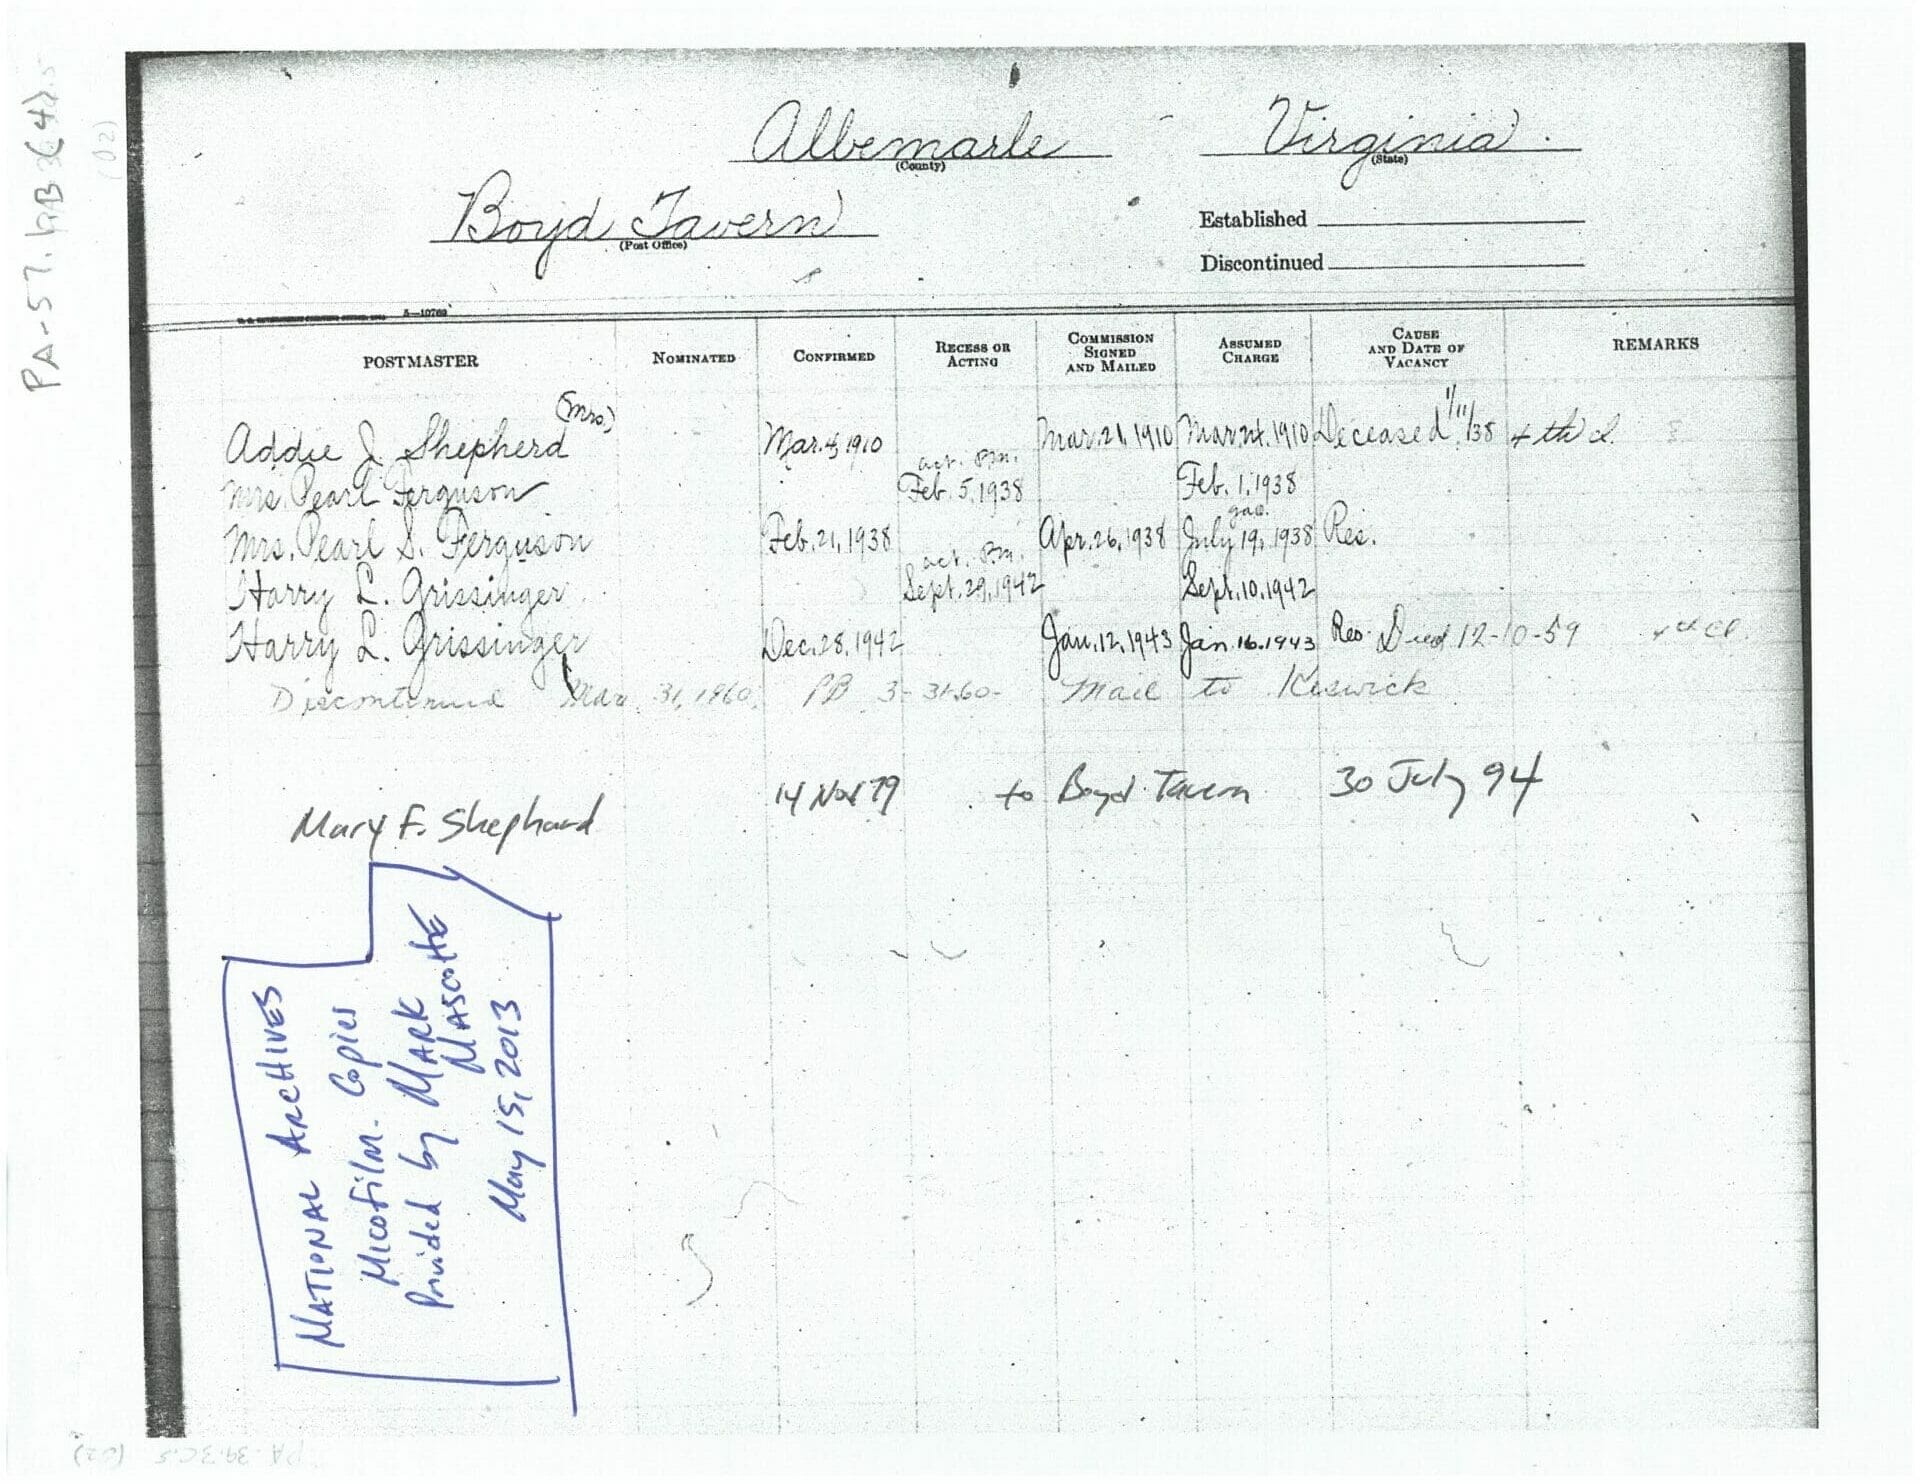 PA-57.
Albemarle
(County)
Virginia
(State)
Boyd Tavern
(Post Office)
Established
Discontinued
5—10769
POSTMASTER NOMINATED CONFIRMED RECESS OR ACTING COMMISSION SIGNED AND MAILED ASSUMED CHARGE CAUSE AND DATE OF VACANCY REMARKS
Addie J. Shepherd (Mrs.) Mar. 1910 Mar. 21, 1910 Mar 24, 1910 Deceased 1/11/38 4th cl.
Mrs. Pearl Ferguson act. P.m. Feb. 5, 1938 Feb. 1, 1938
Mrs. Pearl S. Ferguson Feb. 21, 1938 Apr. 26, 1938 July 19, 1938 Res.
Harry L. Grissinger act. P.m. Sept. 29, 1942 Sept. 10, 1942
Harry L. Grissinger Dec. 28, 1942 Jan. 12, 1943 Jan. 16, 1943 Res. Died 12-10-59
Discontinued Mar 31, 1960. PB 3-31-60- Mail to Keswick
Mary F. Shephard 14 Nov 79 to Boyd Tavern 30 July 94
NATIONAL ARCHIVES
Micofilm. Copies
Provided by MARK
MASCOTTE
May 15, 2013